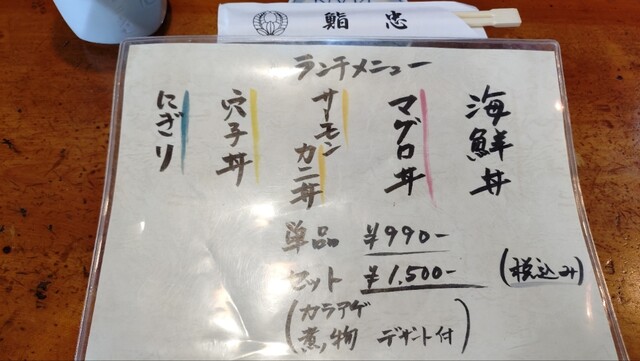 鮨 忠
ランチメニュー
海鮮丼
マグロ丼
サーモンカニ丼
穴子丼
にぎり
単品 ¥990-
セット ¥1,500- (税込み)
(カラアゲ
煮物 デザート付)